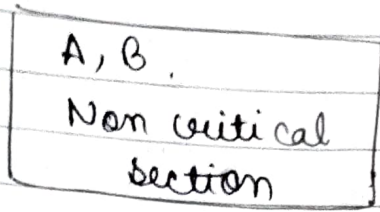 A, B.
Non critical
section